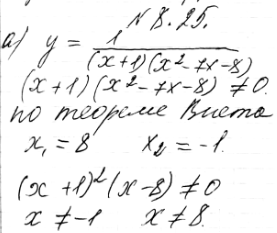 № 8.25.
а) y = 1 / ((x+1)(x²-7x-8))
(x+1)(x²-7x-8) ≠ 0
по теореме Виета
x₁ = 8 x₂ = -1.
(x+1)²(x-8) ≠ 0
x ≠ -1 x ≠ 8.